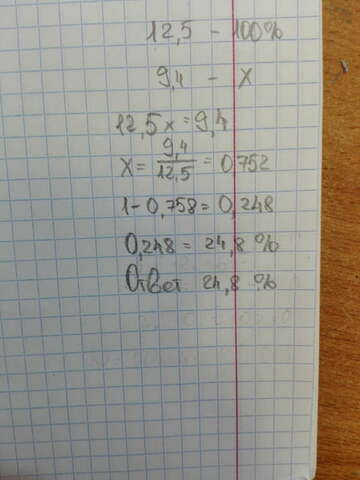 12,5 - 100%
9,4 - x
12,5x = 9,4
x = 9,4/12,5 = 0,752
1-0,758 = 0,248
0,248 = 24,8 %
Ответ 24,8 %